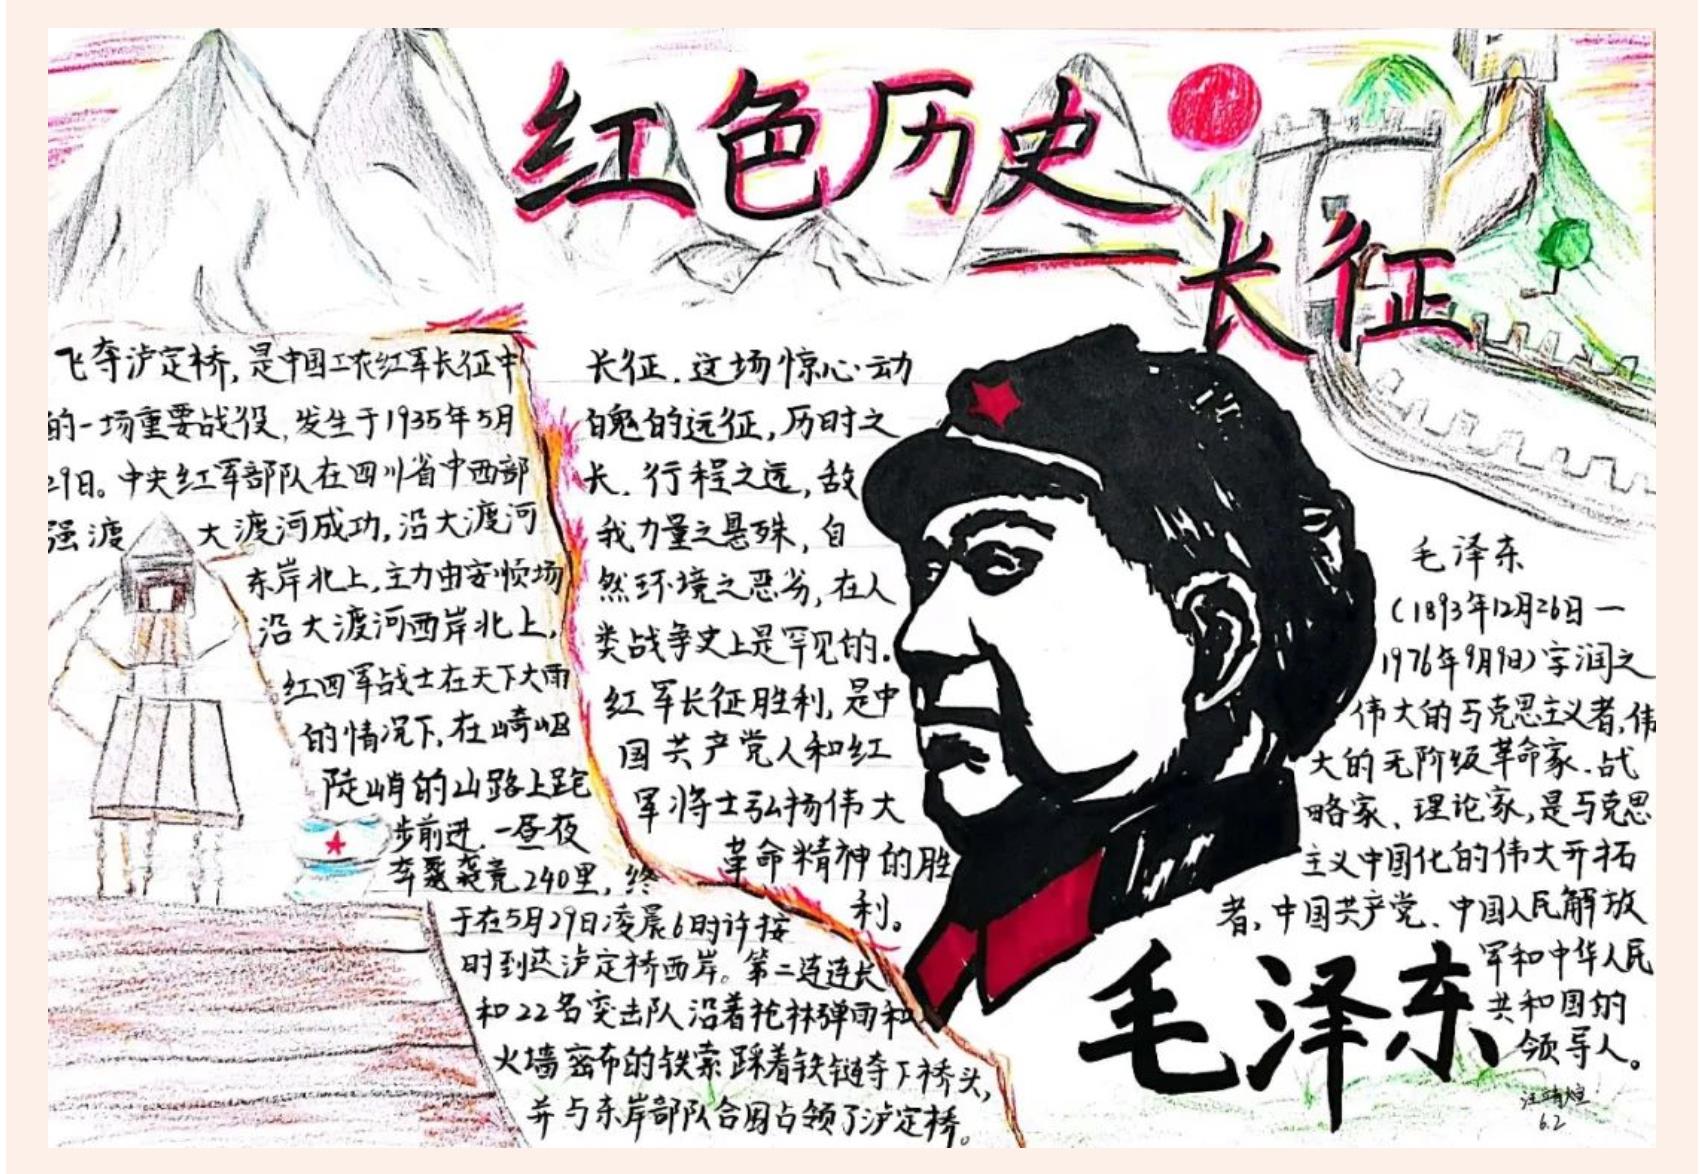 红色历史
——长征
飞夺泸定桥，是中国工农红军长征中
的一场重要战役，发生于1935年5月
29日。中央红军部队在四川省中西部
强渡大渡河成功，沿大渡河
东岸北上，主力由安顺场
沿大渡河西岸北上，
红四军战士在天下大雨
的情况下，在崎岖
陡峭的山路上跑
步前进，一昼夜
奔袭竟240里，终
于在5月29日凌晨6时许按
时到达泸定桥西岸。第二连连长
和22名突击队沿着枪林弹雨和
火墙密布的铁索踩着铁链夺下桥头，
并与东岸部队合围占领了泸定桥。
长征，这场惊心动
魄的远征，历时之
长，行程之远，敌
我力量之悬殊，自
然环境之恶劣，在人
类战争史上是罕见的。
红军长征胜利，是中
国共产党人和红
军将士弘扬伟大
革命精神的胜
利。
毛泽东
（1893年12月26日一
1976年9月9日）字润之
伟大的马克思主义者，伟
大的无阶级革命家、战
略家、理论家，是马克思
主义中国化的伟大开拓
者，中国共产党、中国人民解放
军和中华人民
共和国的
领导人。
毛泽东
6.2